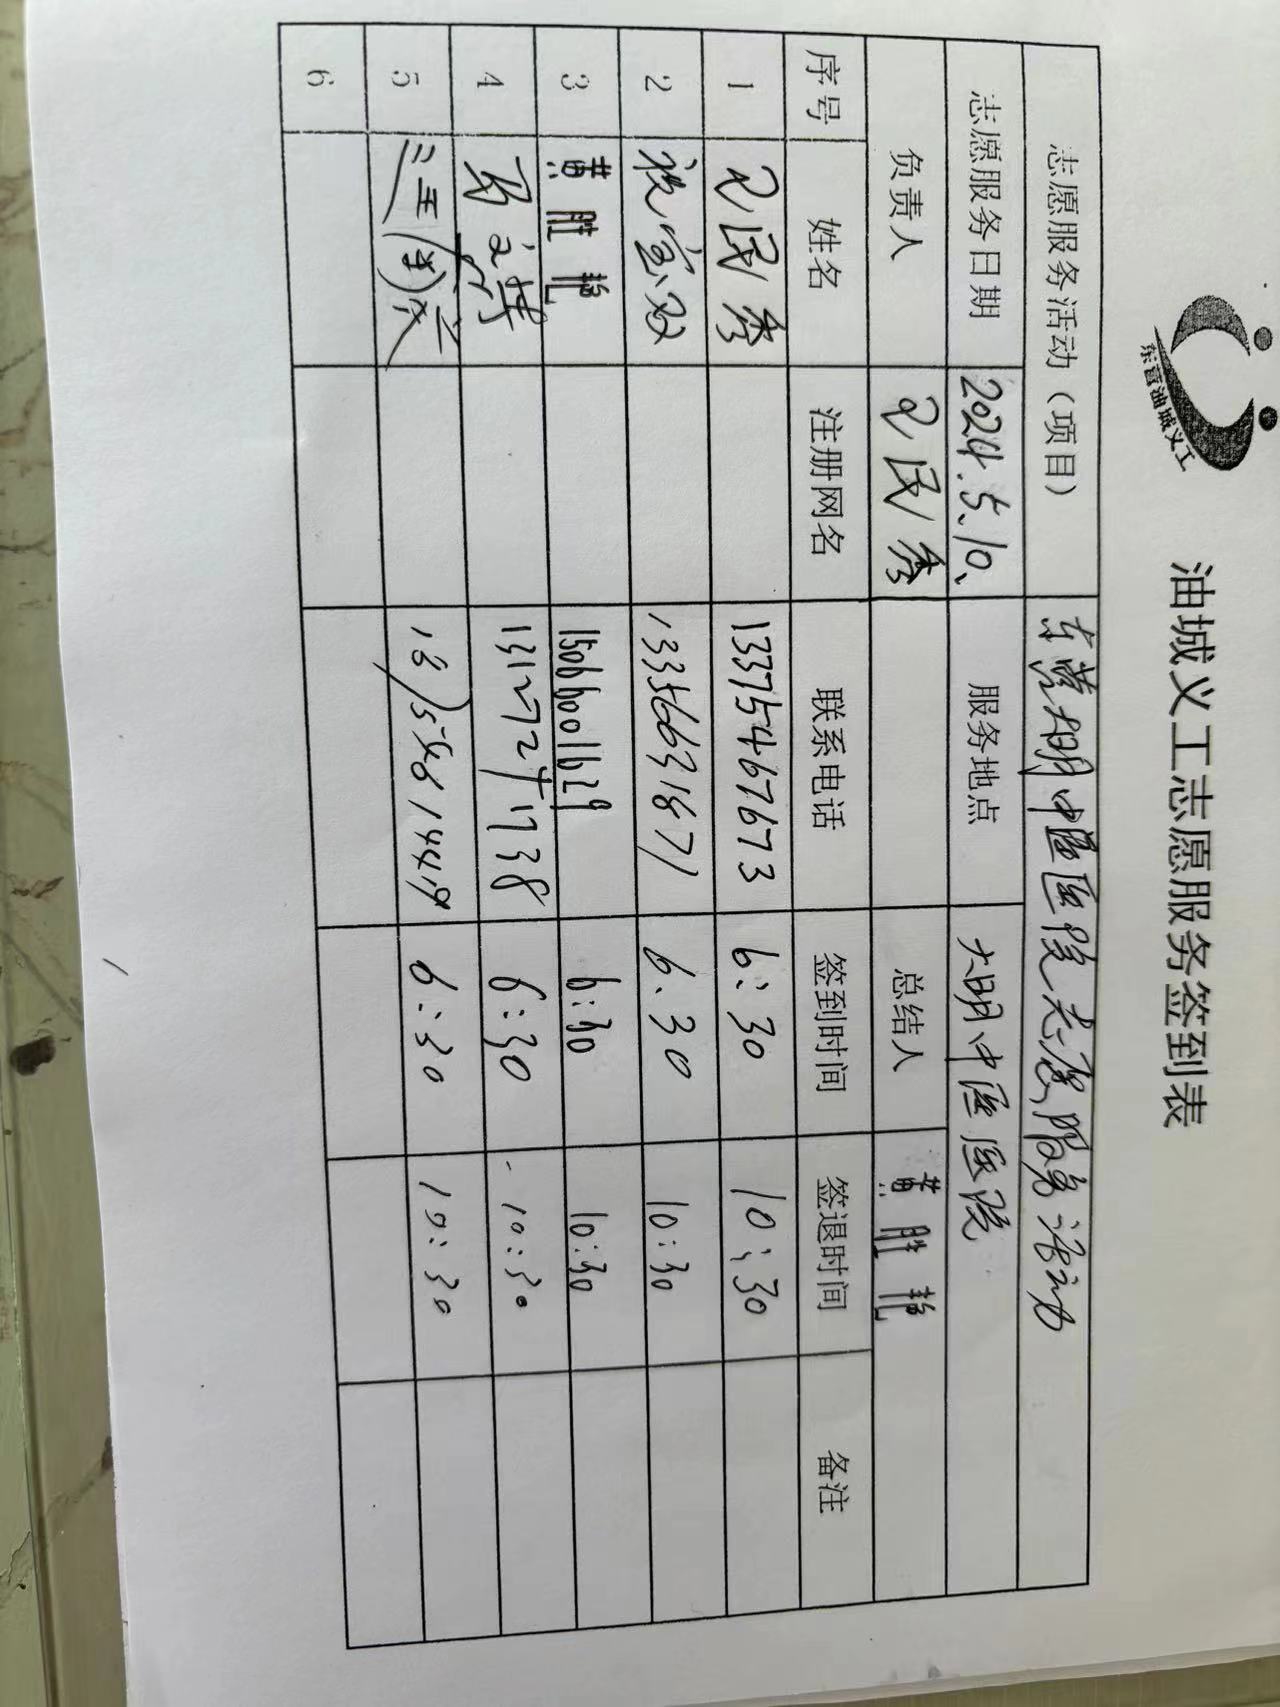 东营油城义工
油城义工志愿服务签到表
志愿服务活动（项目） 东营大明中医医院志愿服务活动
志愿服务日期 2024.5.10、 服务地点 大明中医医院
负责人 民秀 总结人 黄胜艳
序号 姓名 注册网名 联系电话 签到时间 签退时间 备注
1 民秀 13375467673 6:30 10:30
2 宝双 13356631871 6.30 10:30
3 黄胜艳 15066001629 6:30 10:30
4 6:30 10:30
5 6:30 10:30
6